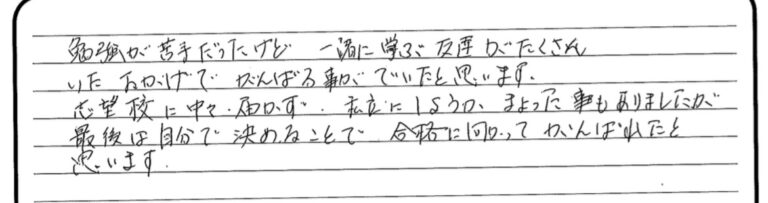 勉強が苦手だったけど 一緒に学ぶ友達がたくさん
いたおかげで がんばる事ができたと思います.
志望校に中々届かず. 私立にしようか、まよった事もありましたが
最後は自分で決めることで 合格に向かってがんばれたと
思います.